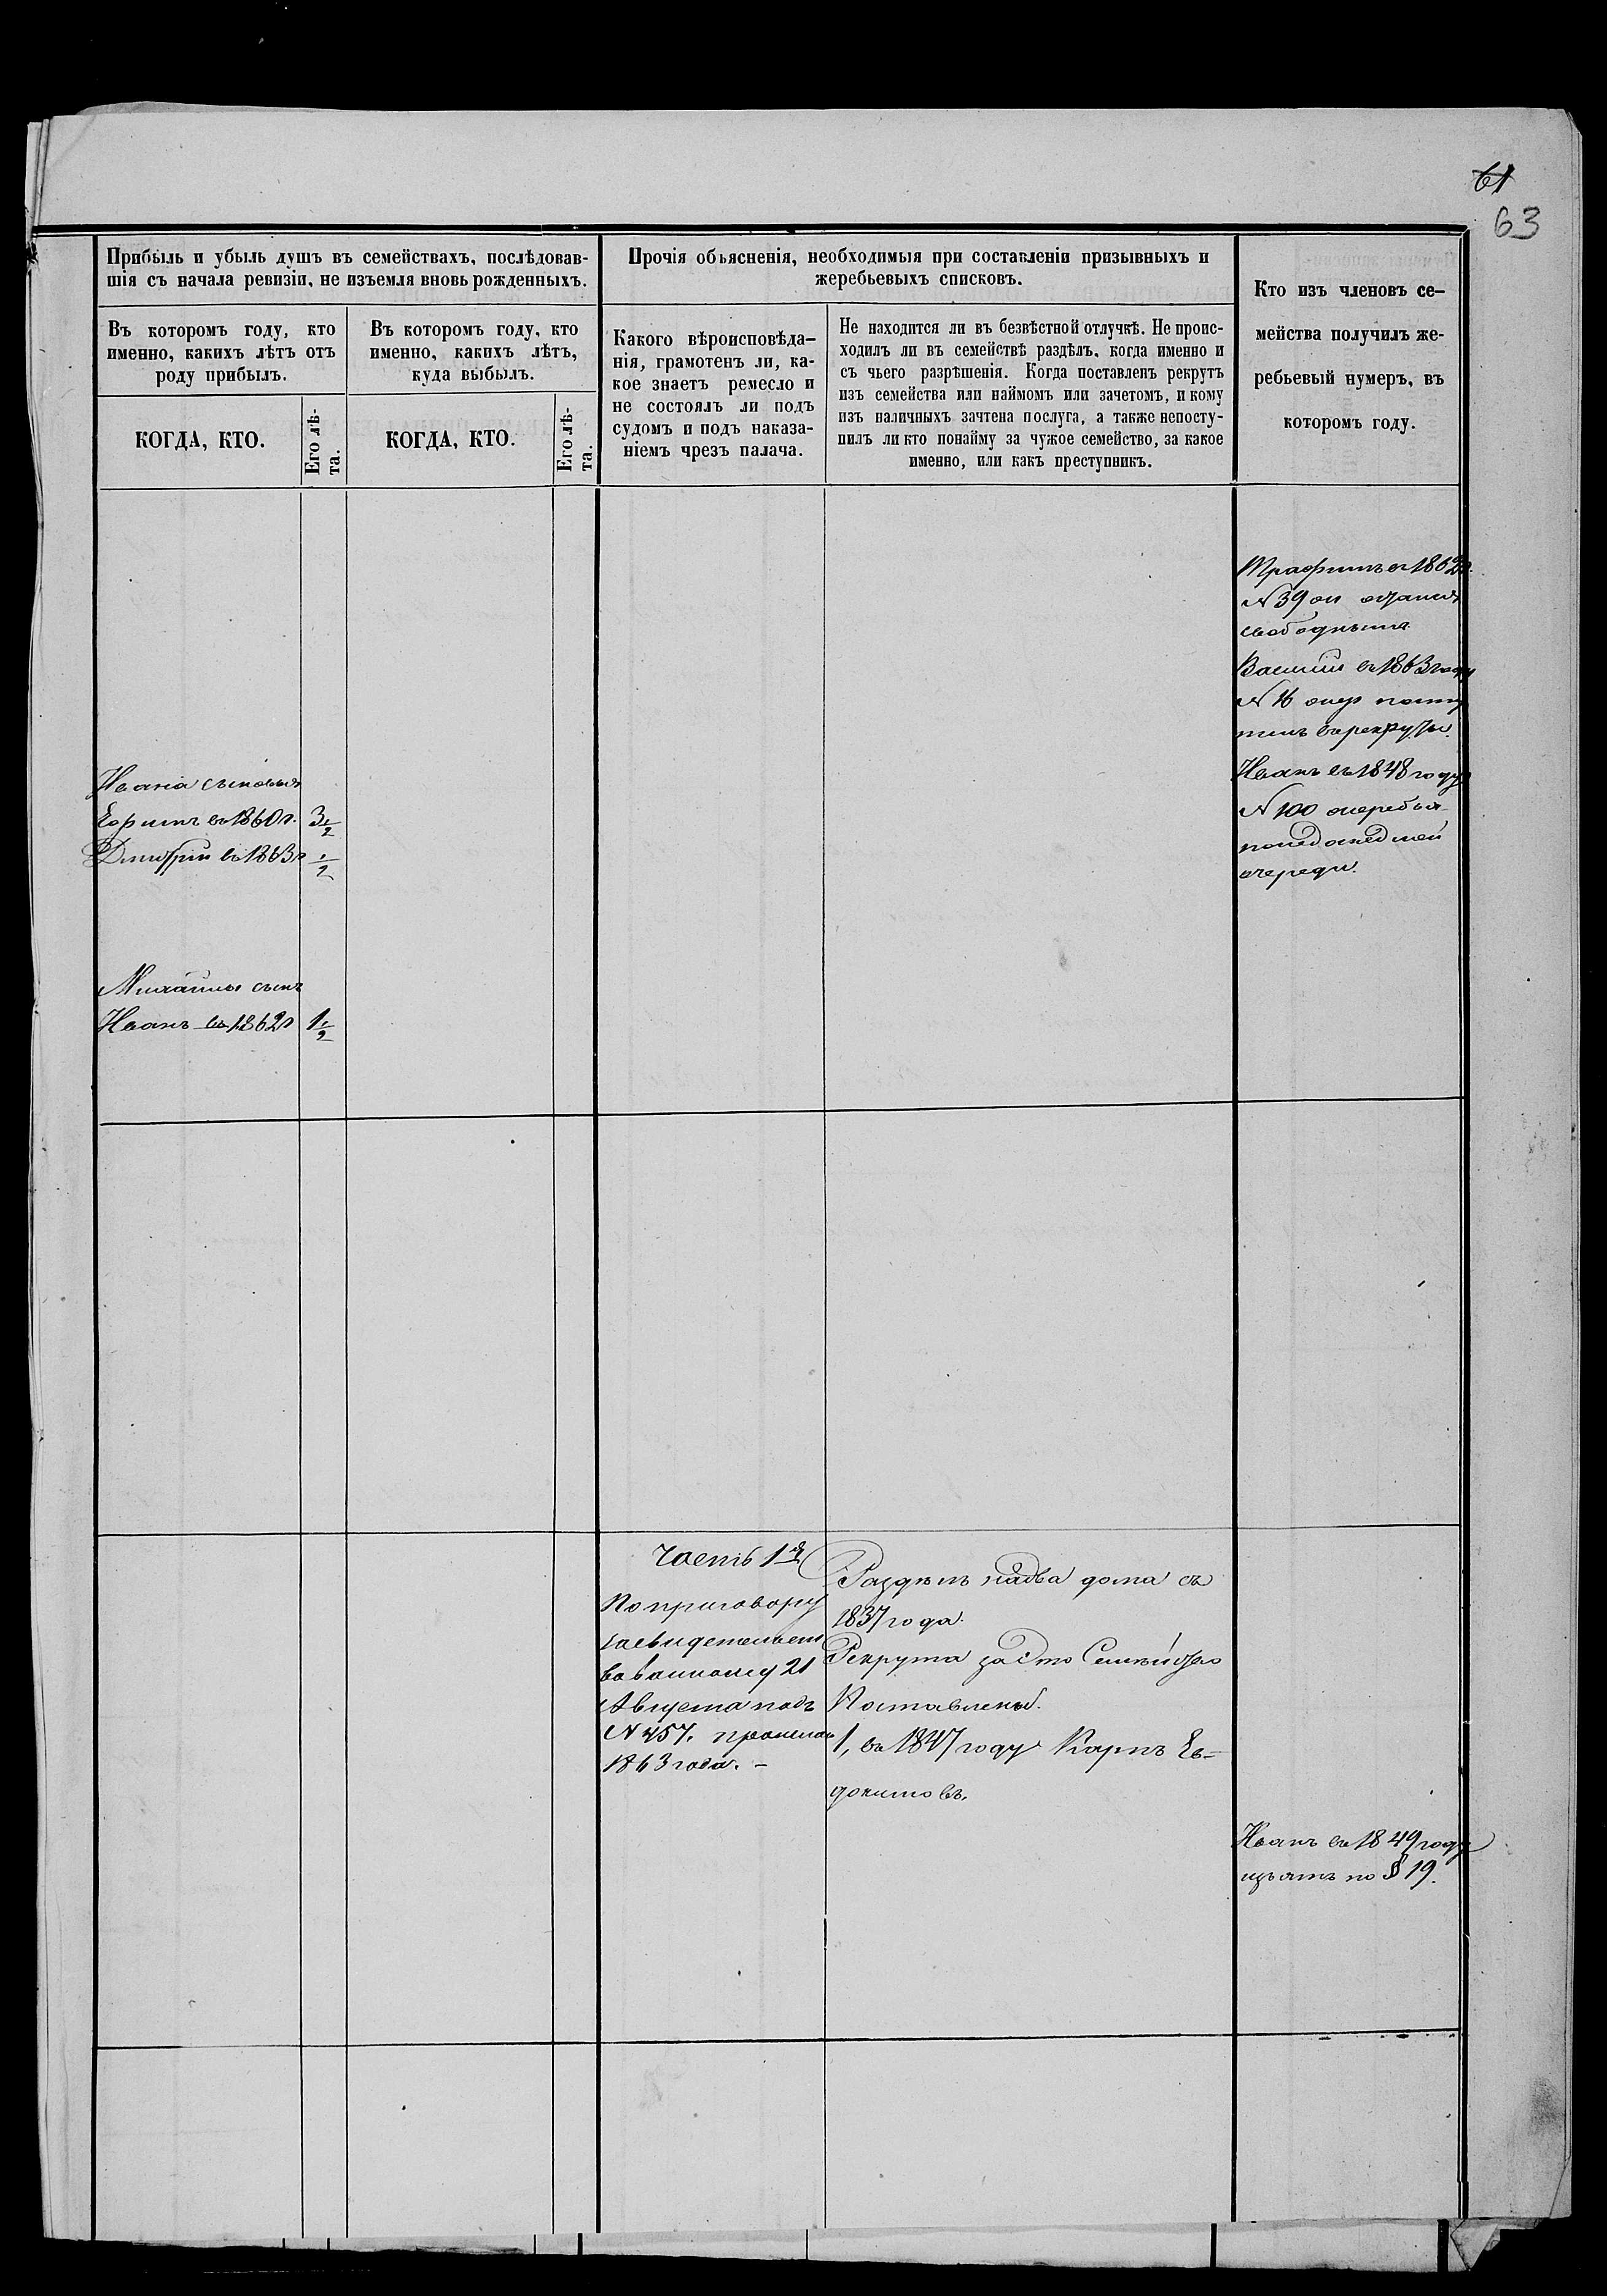 61
63
Прибыль и убыль душъ въ семействахъ, послѣдовав-
шія съ начала ревизіи, не изъемля вновь рожденныхъ.
Въ которомъ году, кто
именно, какихъ лѣтъ отъ
роду прибылъ.
КОГДА, КТО.
Его лѣ-
та.
Въ которомъ году, кто
именно, какихъ лѣтъ,
куда выбылъ.
КОГДА, КТО.
Его лѣ-
та.
Прочія объясненія, необходимыя при составленіи призывныхъ и
жеребьевыхъ списковъ.
Какого вѣроисповѣда-
нія, грамотенъ ли, ка-
кое знаетъ ремесло и
не состоялъ ли подъ
судомъ и подъ наказа-
ніемъ чрезъ палача.
Не находится ли въ безвѣстной отлучкѣ. Не проис-
ходилъ ли въ семействѣ раздѣлъ, когда именно и
съ чьего разрѣшенія. Когда поставленъ рекрутъ
изъ семейства или наймомъ или зачетомъ, и кому
изъ наличныхъ зачтена послуга, а также непосту-
пилъ ли кто понайму за чужое семейство, за какое
именно, или какъ преступникъ.
Кто изъ членовъ се-
мейства получилъ же-
ребьевый нумеръ, въ
которомъ году.
Ивана сыновья
Ефимъ въ 1860 г. 3 1/2
Дмитрій въ 1863 г 1/2
Михайлы сынъ
Иванъ въ 1862 г 1 1/2
въ 1862 г.
N 39 остался
свободнымъ
Василій въ 1863 году
N 16 посту
пилъ врекруты.
Иванъ въ 1848 году
N 100
очереди.
Часть 1я
По приговору
засвидетельст
вованному 21
Августа подъ
N 457.
1863 года. -
Раздѣлъ надва дома съ
1837 года.
Рекрута за Сто Семейство
Поставлены.
1, въ 1847 году Карпъ Ев=
докимовъ.
Иванъ въ 1849 году
изъятъ по § 19.